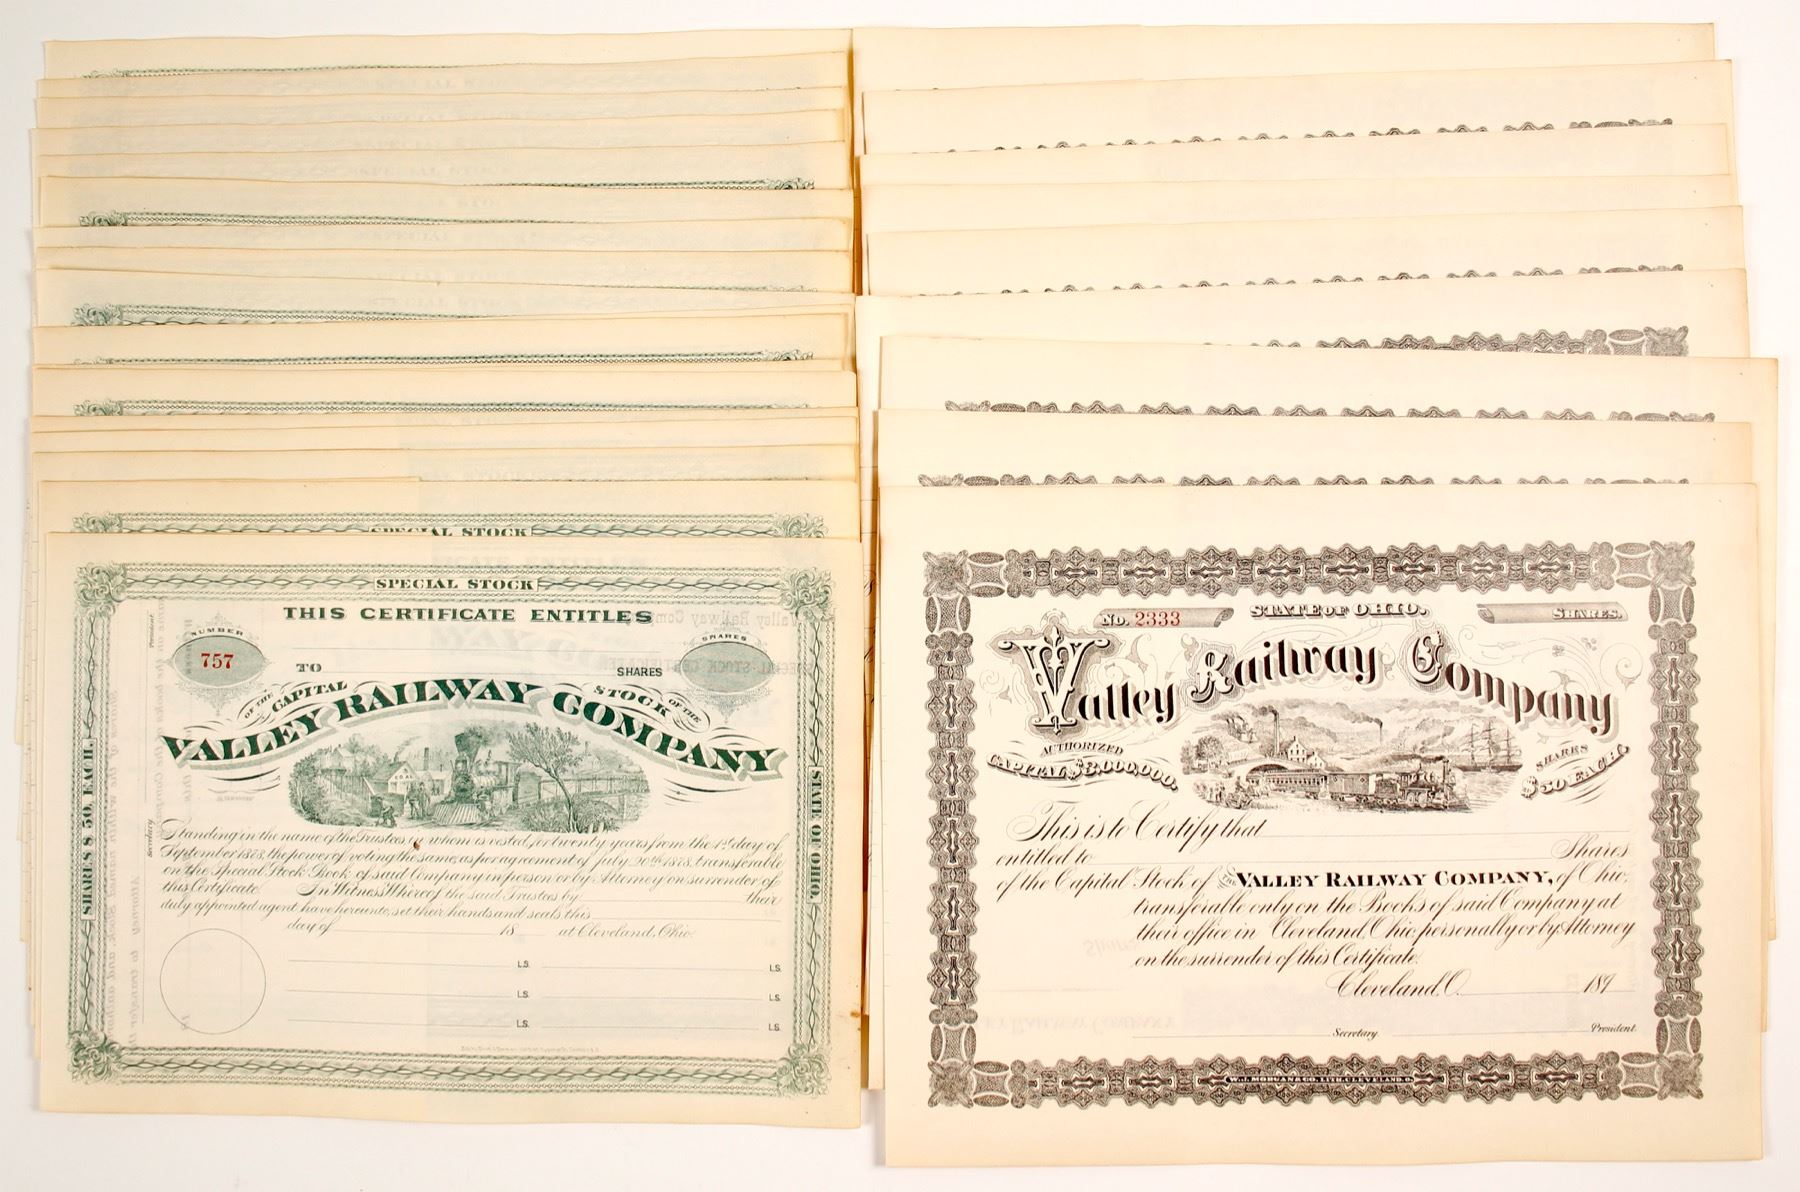 SPECIAL STOCK
SPECIAL STOCK
THIS CERTIFICATE ENTITLES
NUMBER
757
SHARES
TO
SHARES
OF THE CAPITAL STOCK OF THE
VALLEY RAILWAY COMPANY
SHARES $50. EACH.
STATE OF OHIO.
COAL
Standing in the name of the Trustees in whom is vested, for twenty years from the 1st day of
September 1878, the power of voting the same, as per agreement of July 20th 1878, transferable
on the Special Stock Book of said Company in person or by Attorney on surrender of
this Certificate. In Witness Whereof the said Trustees by their
duly appointed agent have hereunto, set their hands and seals this
day of 18 at Cleveland, Ohio.
L.S. L.S.
L.S. L.S.
L.S. L.S.
No. 2333
STATE OF OHIO.
SHARES.
Valley Railway Company
AUTHORIZED
CAPITAL $3,000,000.
SHARES
$50 EACH
This is to Certify that
entitled to Shares
of the Capital Stock of THE VALLEY RAILWAY COMPANY, of Ohio,
transferable only on the Books of said Company at
their office in Cleveland, Ohio, personally or by Attorney
on the surrender of this Certificate.
Cleveland, O. 189
Secretary. President.
W.J. MORGAN & CO. LITH. CLEVELAND. O.